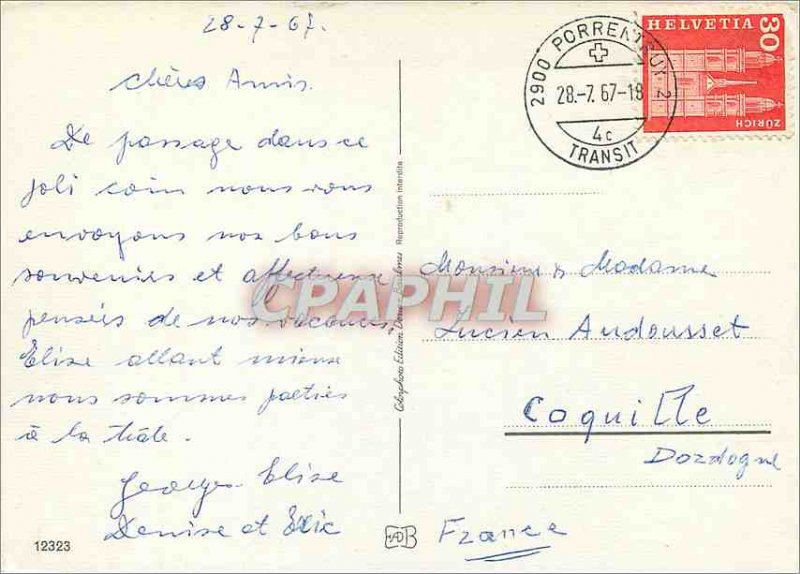 28-7-67.
chères Amis.
De passage dans ce
joli coin nous vous
envoyons nos bons
souvenirs et affectueuse
pensées de nos vacances.
Elise allant mieux
nous sommes parties
à la hâte.
Georges Elise
Denise et Eric
12323
Colorphoto Edition Reproduction interdite
HELVETIA 30
ZÜRICH
2900 PORRENTRUY 2
28.-7.67-18
4c
TRANSIT
CPAPHIL
Monsieur & Madame
Lucien Audousset
Coquille
Dordogne
France